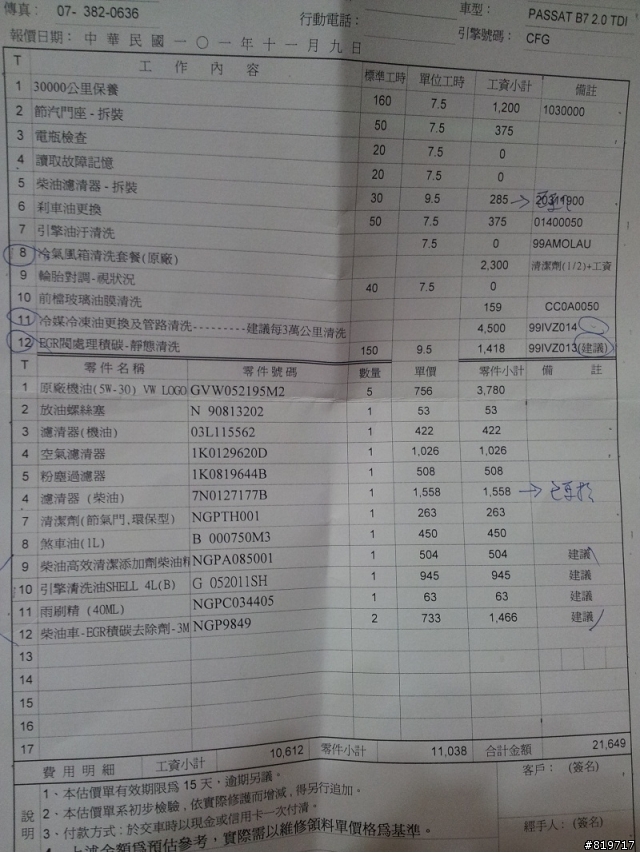 傳真： 07- 382-0636 行動電話： 車型： PASSAT B7 2.0 TDI
報價日期： 中華民國一〇一年十一月九日 引擎號碼： CFG
T 工作內容 標準工時 單位工時 工資小計 備註
1 30000公里保養 160 7.5 1,200 1030000
2 節汽門座 - 拆裝 50 7.5 375
3 電瓶檢查 20 7.5 0
4 讀取故障記憶 20 7.5 0
5 柴油濾清器 - 拆裝 30 9.5 285
6 刹車油更換 50 7.5 375 01400050
7 引擎油汙清洗 7.5 0 99AMOLAU
8 冷氣風箱清洗套餐(原廠) 2,300 清潔劑(1/2)+工資
9 輪胎對調-視狀況 40 7.5 0
10 前檔玻璃油膜清洗 159 CC0A0050
11 冷媒冷凍油更換及管路清洗---------建議每3萬公里清洗 4,500 99IVZ014
12 EGR閥處理積碳-靜態清洗 150 9.5 1,418 99IVZ013(建議)
T 零件名稱 零件號碼 數量 單價 零件小計 備 註
1 原廠機油(5W-30) VW LOGO GVW052195M2 5 756 3,780
2 放油螺絲塞 N 90813202 1 53 53
3 濾清器(機油) 03L115562 1 422 422
4 空氣濾清器 1K0129620D 1 1,026 1,026
5 粉塵過濾器 1K0819644B 1 508 508
4 濾清器 (柴油) 7N0127177B 1 1,558 1,558
7 清潔劑(節氣門,環保型) NGPTH001 1 263 263
8 煞車油(1L) B 000750M3 1 450 450
9 柴油高效清潔添加劑柴油精 NGPA085001 1 504 504 建議
10 引擎清洗油SHELL 4L(B) G 052011SH 1 945 945 建議
11 雨刷精 (40ML) NGPC034405 1 63 63 建議
12 柴油車-EGR積碳去除劑-3M NGP9849 2 733 1,466 建議
13
14
15
16
17
費用明細 工資小計 10,612 零件小計 11,038 合計金額 21,649
說明 1、本估價單有效期限為 15 天，逾期另議。 客戶： (簽名)
2、本估價單系初步檢驗，依實際修護而增減，得另行追加。
3、付款方式：於交車時以現金或信用卡一次付清。 經手人： (簽名)
4、上述金額為預估參考，實際需以維修領料單價格為基準。
#819717